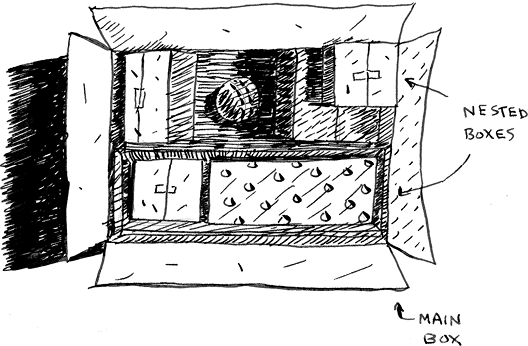 NESTED
BOXES
MAIN
BOX